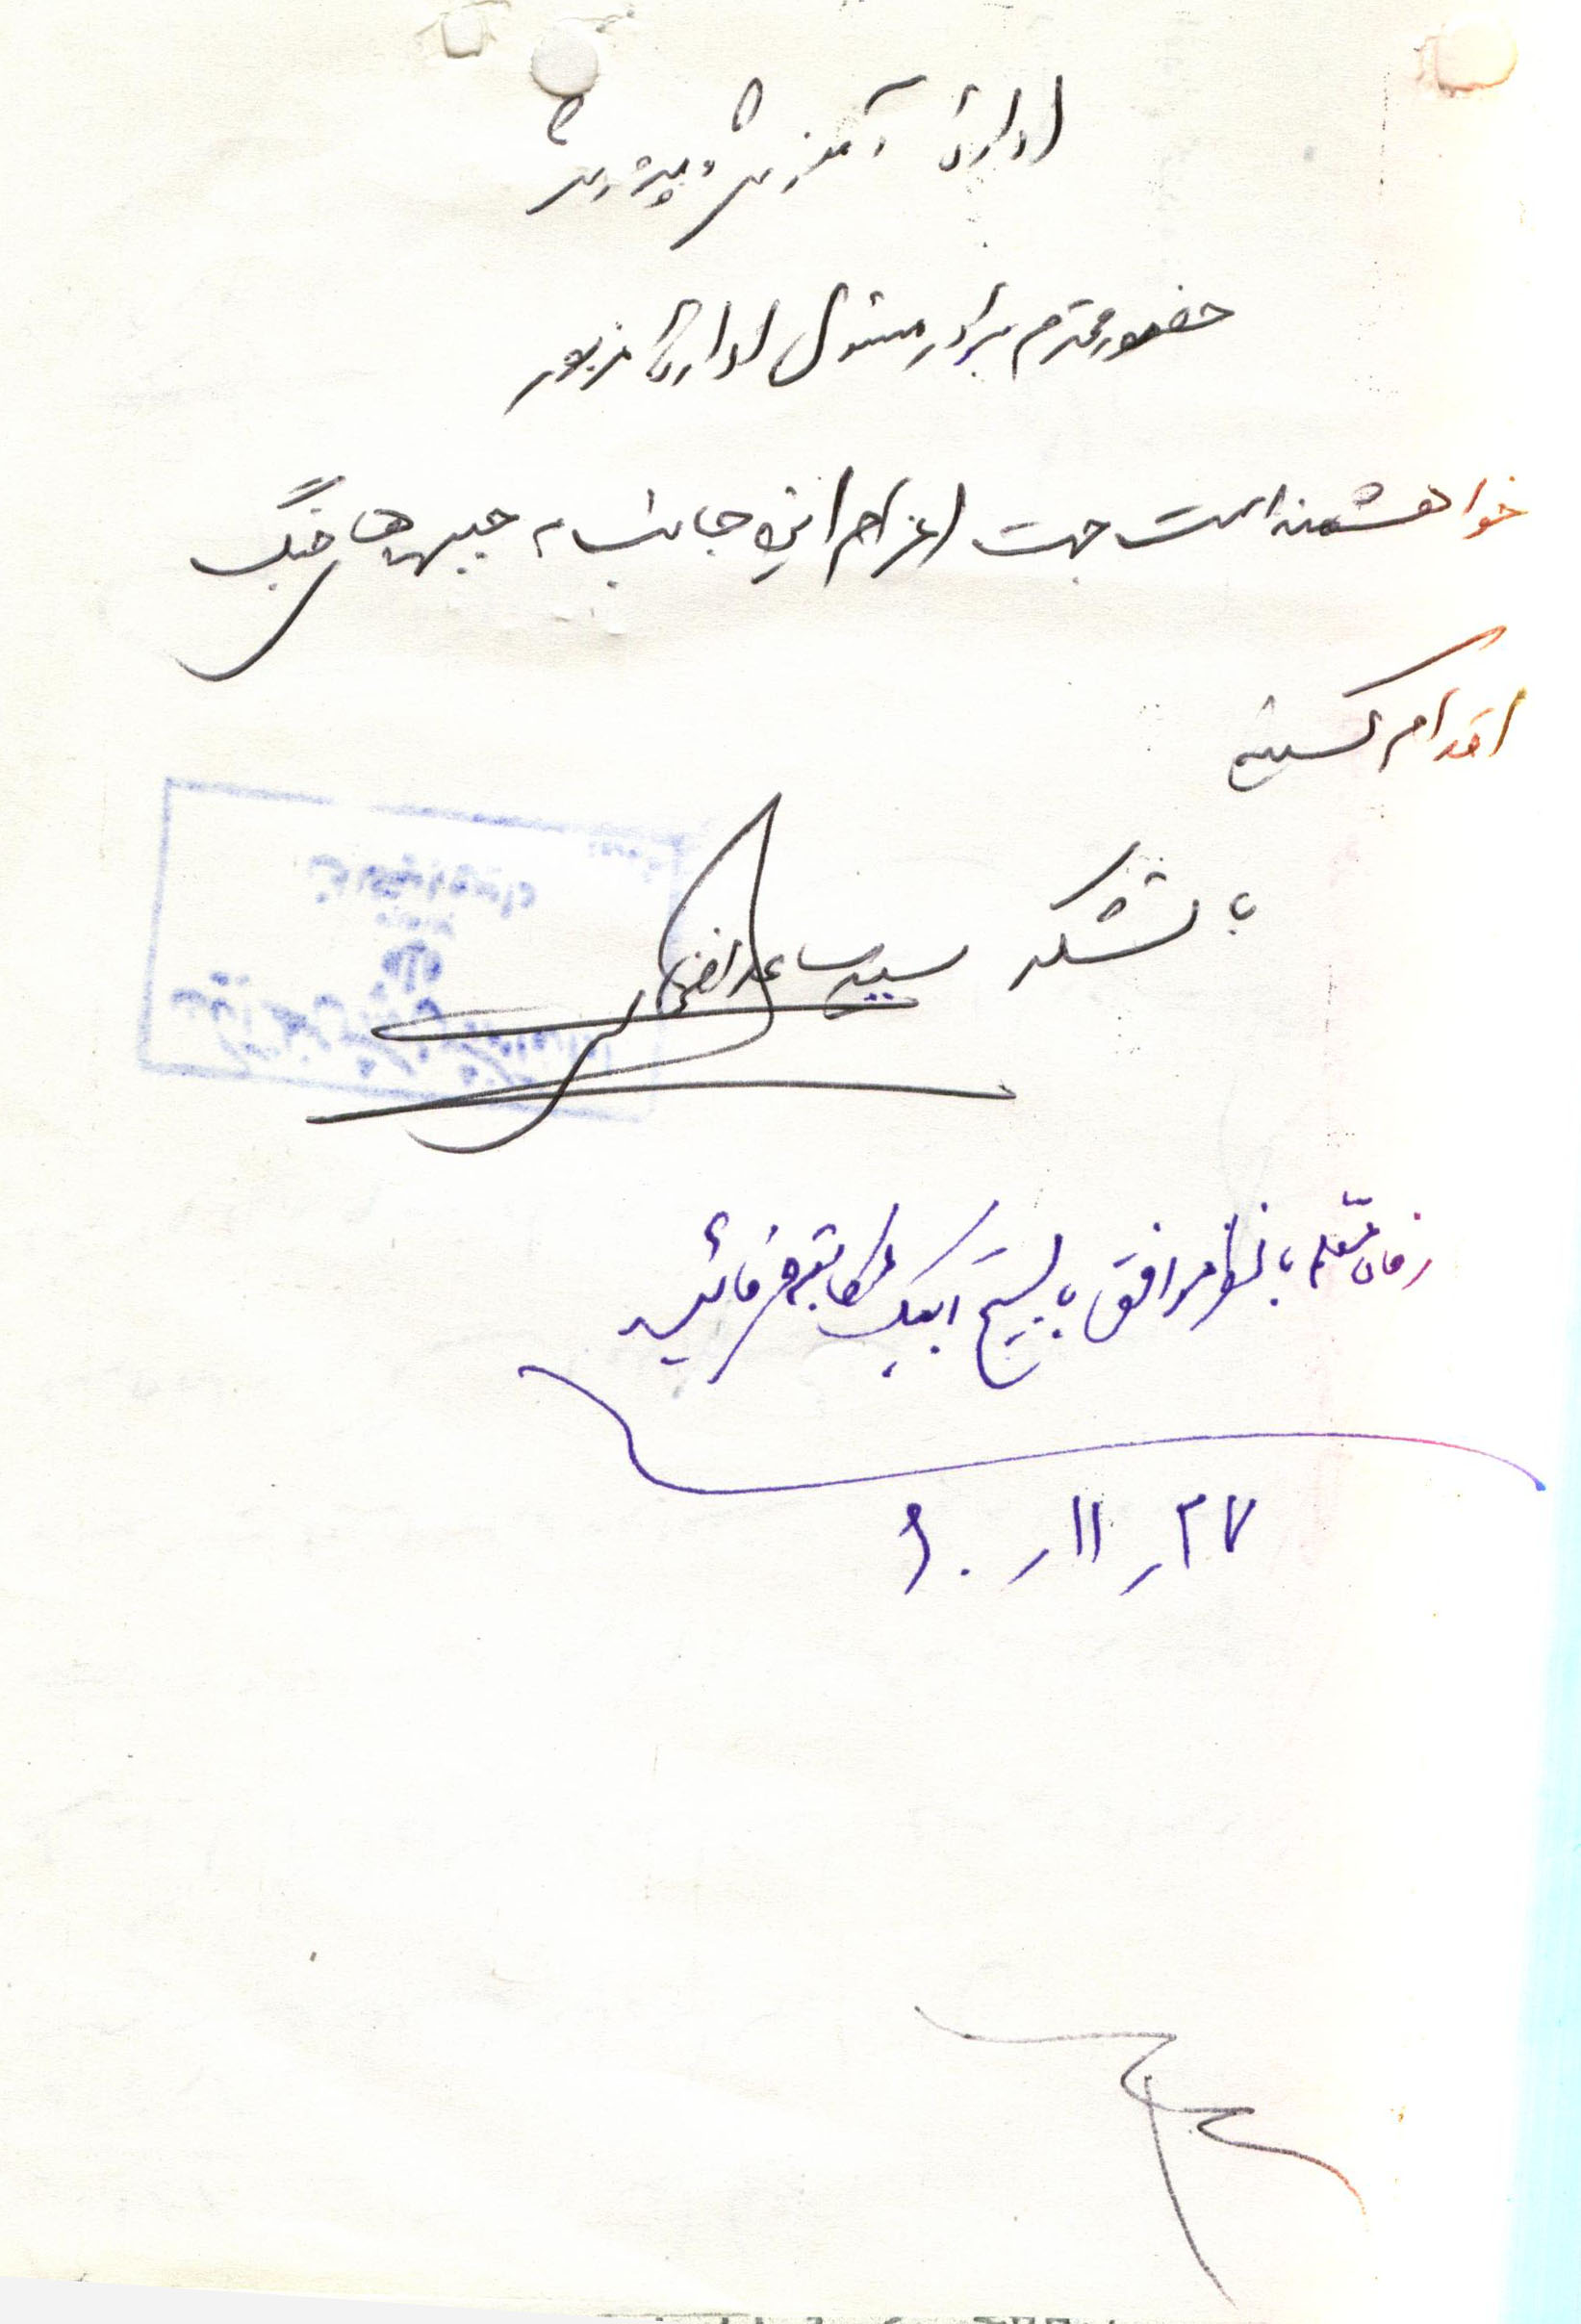 اداره آموزش و پرورش
حضور محترم برادر مسئول اداره مزبور
خواهشمند است جهت اعزام اینجانب به جبهه های جنگ
اقدام کنید
با تشکر سید
با نظر موافق با بسیج آبیک مکاتبه فرمائید
۲۷ر۱۱ر۶۰